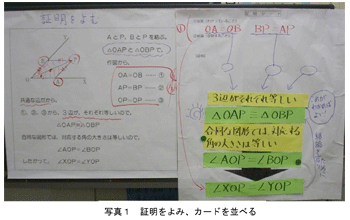 証明をよむ
AとP、BとPを結ぶ。
△OAPと△OBPで、
作図から、
OA=OB ……①
AP=BP ……②
OP=OP ……③
①、②、③から、3辺が、それぞれ等しいので、
△OAP≡△OBP
合同な図形では、対応する角の大きさは等しいので、
∠AOP=∠BOP
したがって、∠XOP=∠YOP
OA=OB BP=AP
3辺がそれぞれ等しい
△OAP≡△OBP
合同な図形では、対応する
角の大きさは等しい
∠AOP=∠BOP
∠XOP=∠YOP
写真1 証明をよみ、カードを並べる